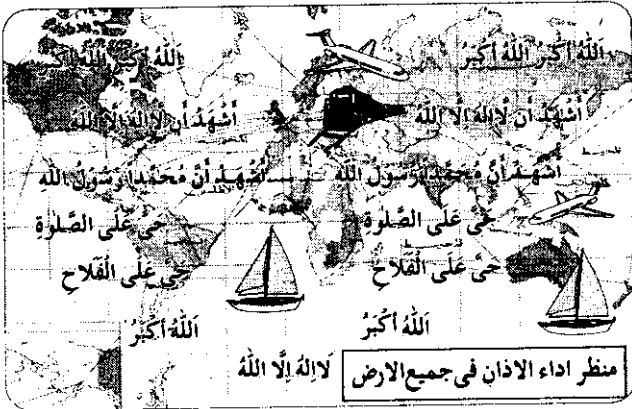 اَللّٰهُ اَكْبَرُ اَللّٰهُ اَكْبَرُ اَللّٰهُ اَكْبَرُ اَللّٰهُ اَكْبَرُ
أَشْهَدُ أَنْ لَّا اِلٰهَ اِلَّا اللّٰهُ أَشْهَدُ أَنْ لَّا اِلٰهَ اِلَّا اللّٰهُ
أَشْهَدُ أَنَّ مُحَمَّدًا رَسُوْلُ اللّٰه أَشْهَدُ أَنَّ مُحَمَّدًا رَسُوْلُ اللّٰه
حَىَّ عَلَى الصَّلٰوةِ حَىَّ عَلَى الصَّلٰوةِ
حَىَّ عَلَى الْفَلَاحِ حَىَّ عَلَى الْفَلَاحِ
اَللّٰهُ أَكْبَرُ اَللّٰهُ أَكْبَرُ
لَا اِلٰهَ اِلَّا اللّٰهُ
منظر اداء الاذان فى جميع الارض